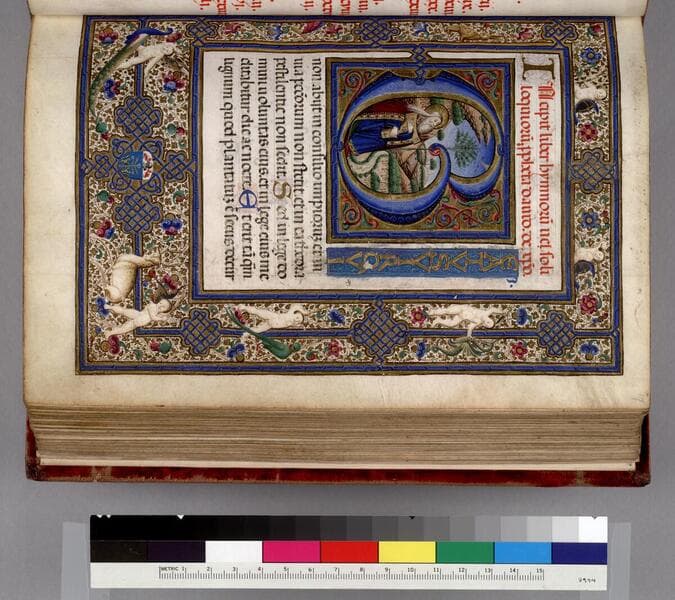 Incipit liber hymnorū vel soli
loquiorū pphete dauid de xp̄o
non abijt in consilio impiorū: et in
uia peccatorū non stetit: et in cathedra
pestilentie non sedit. Sed in lege do
mini uoluntas eius: et in lege eius me
ditabitur die ac nocte. Et erit tāq̄
lignum quod plantatū ē secus decur
METRIC 1 2 3 4 5 6 7 8 9 10 11 12 13 14 15